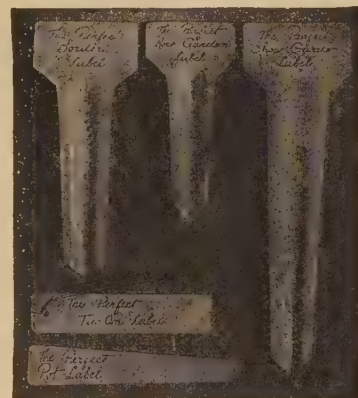 The Perfect
Border
Label
The Perfect
Label
The Perfect
Label
The Perfect
Tie-On Label
The Perfect
Pot Label